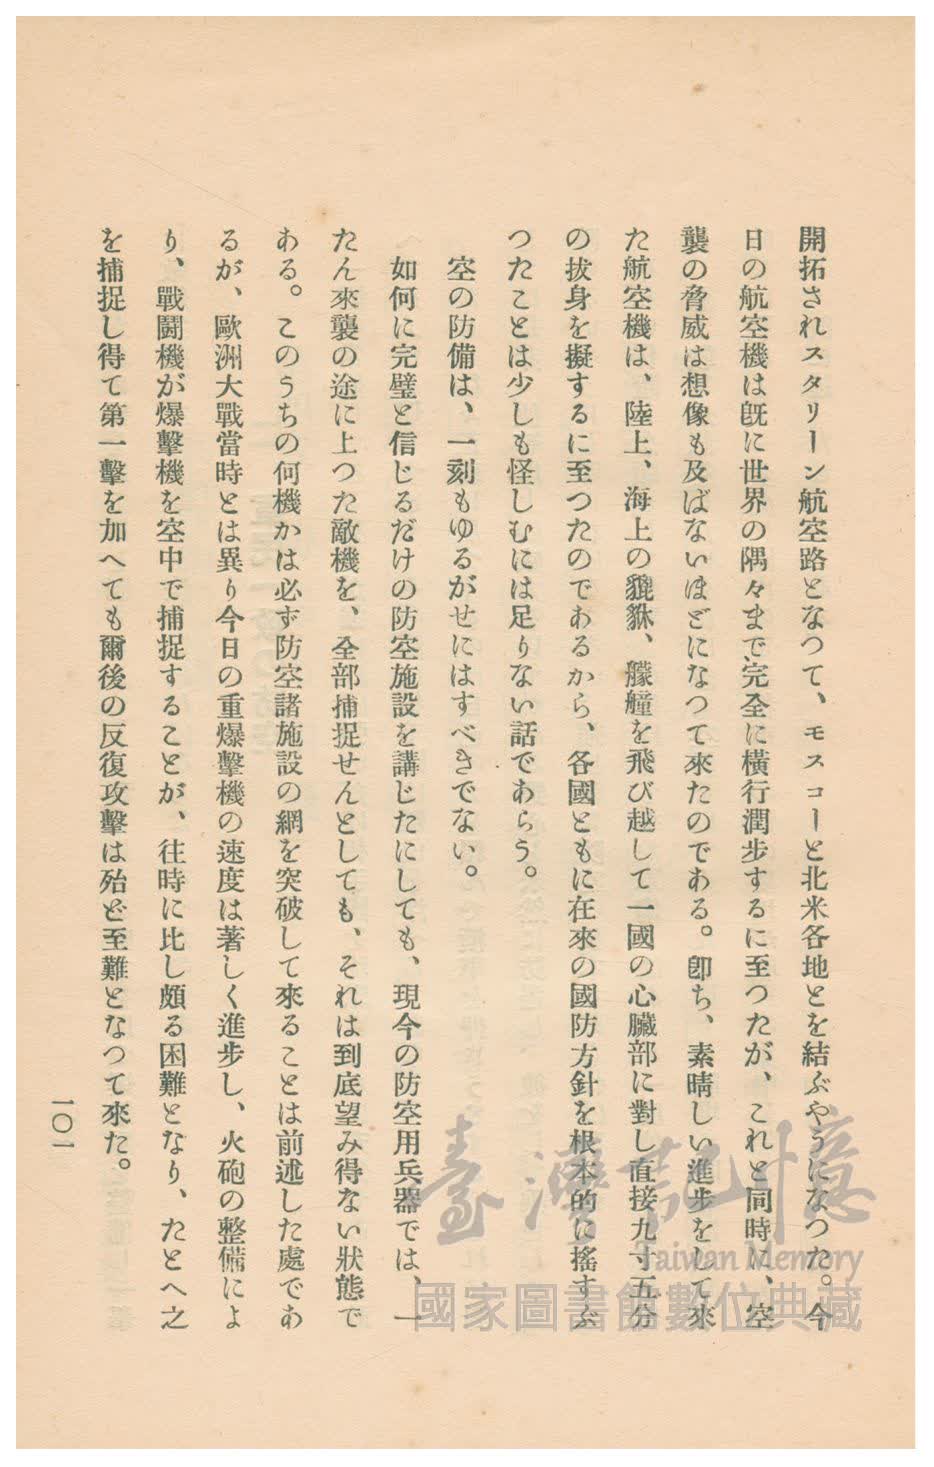 開拓されスタリーン航空路となつて、モスコーと北米各地とを結ぶやうになつた。今
日の航空機は既に世界の隅々まで完全に橫行濶步するに至つたが、これと同時に、空
襲の脅威は想像も及ばないほどになつて來たのである。卽ち、素晴しい進步をして來
た航空機は、陸上、海上の貔貅、艨艟を飛び越して一國の心臟部に對し直接九寸五分
の拔身を擬するに至つたのであるから、各國ともに在來の國防方針を根本的に搖すぶ
つたことは少しも怪しむには足りない話であらう。
空の防備は、一刻もゆるがせにはすべきでない。
如何に完璧と信じるだけの防空施設を講じたにしても、現今の防空用兵器では、一
たん來襲の途に上つた敵機を、全部捕捉せんとしても、それは到底望み得ない狀態で
ある。このうちの何機かは必ず防空諸施設の網を突破して來ることは前述した處であ
るが、歐洲大戰當時とは異り今日の重爆擊機の速度は著しく進步し、火砲の整備によ
り、戰鬪機が爆擊機を空中で捕捉することが、往時に比し頗る困難となり、たとへ之
を捕捉し得て第一擊を加へても爾後の反復攻擊は殆ど至難となつて來た。
一〇一
臺灣記憶
Taiwan Memory
國家圖書館數位典藏